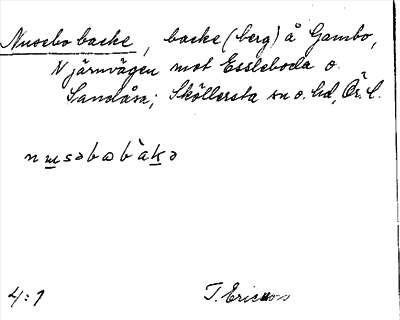 Nusebo backe, backe (berg) å Gambo,
N järnvägen mot Essleboda o.
Sandåsa; Sköllersta sn o. hd, Ör. l.
nusəbobàkə
4:1 T. Ericsson